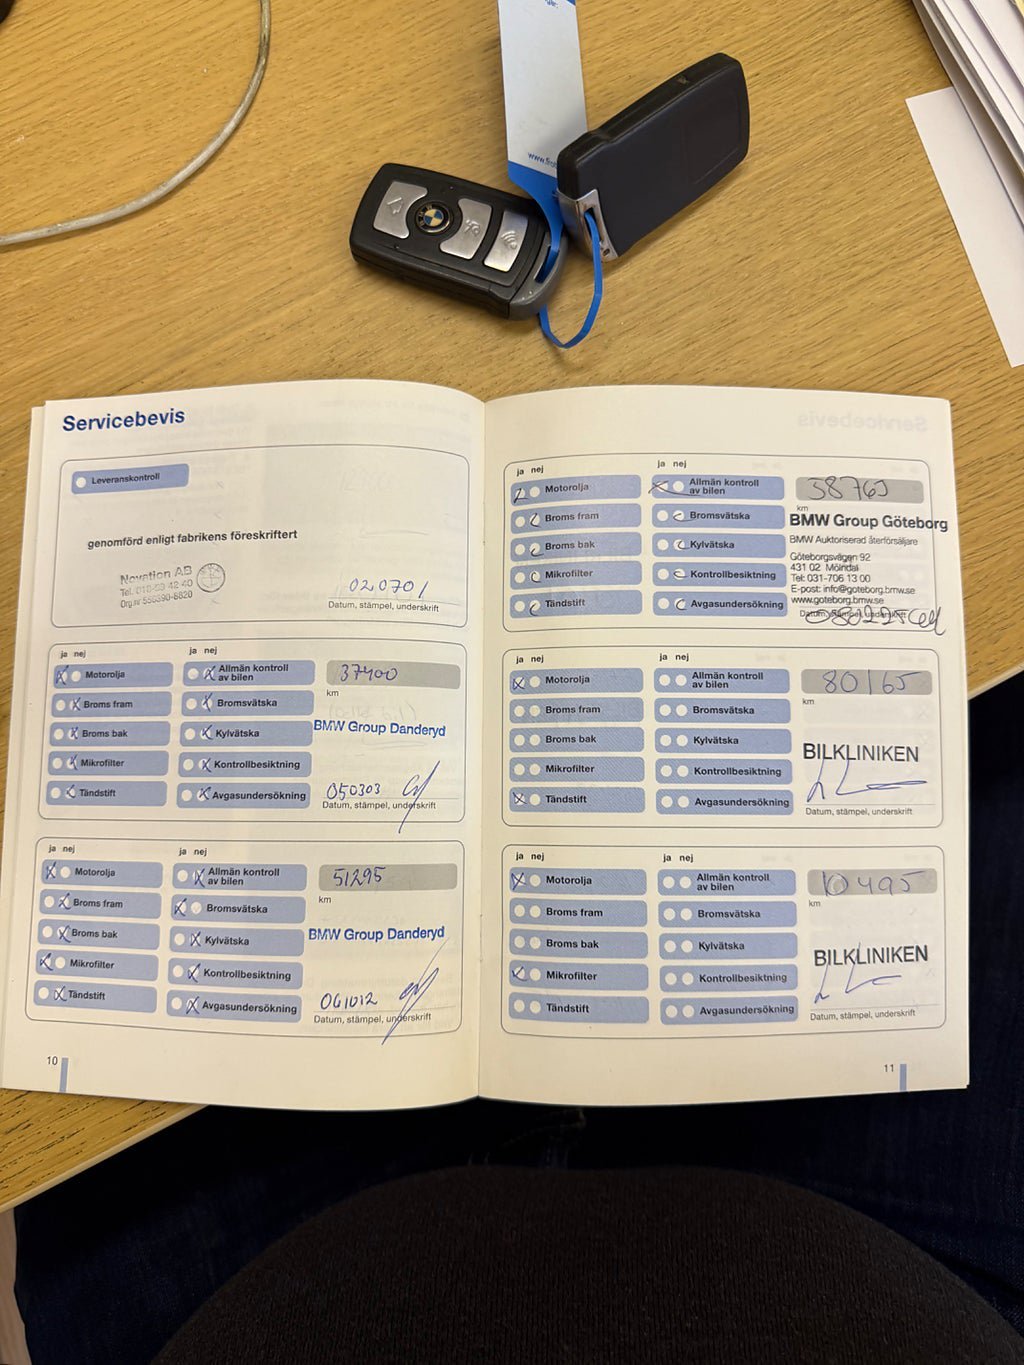 Servicebevis
Leveranskontroll
genomförd enligt fabrikens föreskriftert
Novation AB
020701
Datum, stämpel, underskrift
ja nej
ja nej
Motorolja
Allmän kontroll
av bilen
37400
km
Broms fram
Bromsvätska
BMW Group Danderyd
Broms bak
Kylvätska
Mikrofilter
Kontrollbesiktning
Tändstift
Avgasundersökning
050303
Datum, stämpel, underskrift
ja nej
ja nej
Motorolja
Allmän kontroll
av bilen
51295
km
Broms fram
Bromsvätska
BMW Group Danderyd
Broms bak
Kylvätska
Mikrofilter
Kontrollbesiktning
Tändstift
Avgasundersökning
061012
Datum, stämpel, underskrift
10
ja nej
ja nej
Motorolja
Allmän kontroll
av bilen
km
Broms fram
Bromsvätska
BMW Group Göteborg
BMW Auktoriserad återförsäljare
Broms bak
Kylvätska
Göteborgsvägen 92
431 02 Mölndal
Mikrofilter
Kontrollbesiktning
Tel: 031-706 13 00
E-post: info@goteborg.bmw.se
Tändstift
Avgasundersökning
www.goteborg.bmw.se
Datum, stämpel, underskrift
ja nej
ja nej
Motorolja
Allmän kontroll
av bilen
80165
km
Broms fram
Bromsvätska
Broms bak
Kylvätska
BILKLINIKEN
Mikrofilter
Kontrollbesiktning
Tändstift
Avgasundersökning
Datum, stämpel, underskrift
ja nej
ja nej
Motorolja
Allmän kontroll
av bilen
10495
km
Broms fram
Bromsvätska
Broms bak
Kylvätska
BILKLINIKEN
Mikrofilter
Kontrollbesiktning
Tändstift
Avgasundersökning
Datum, stämpel, underskrift
11